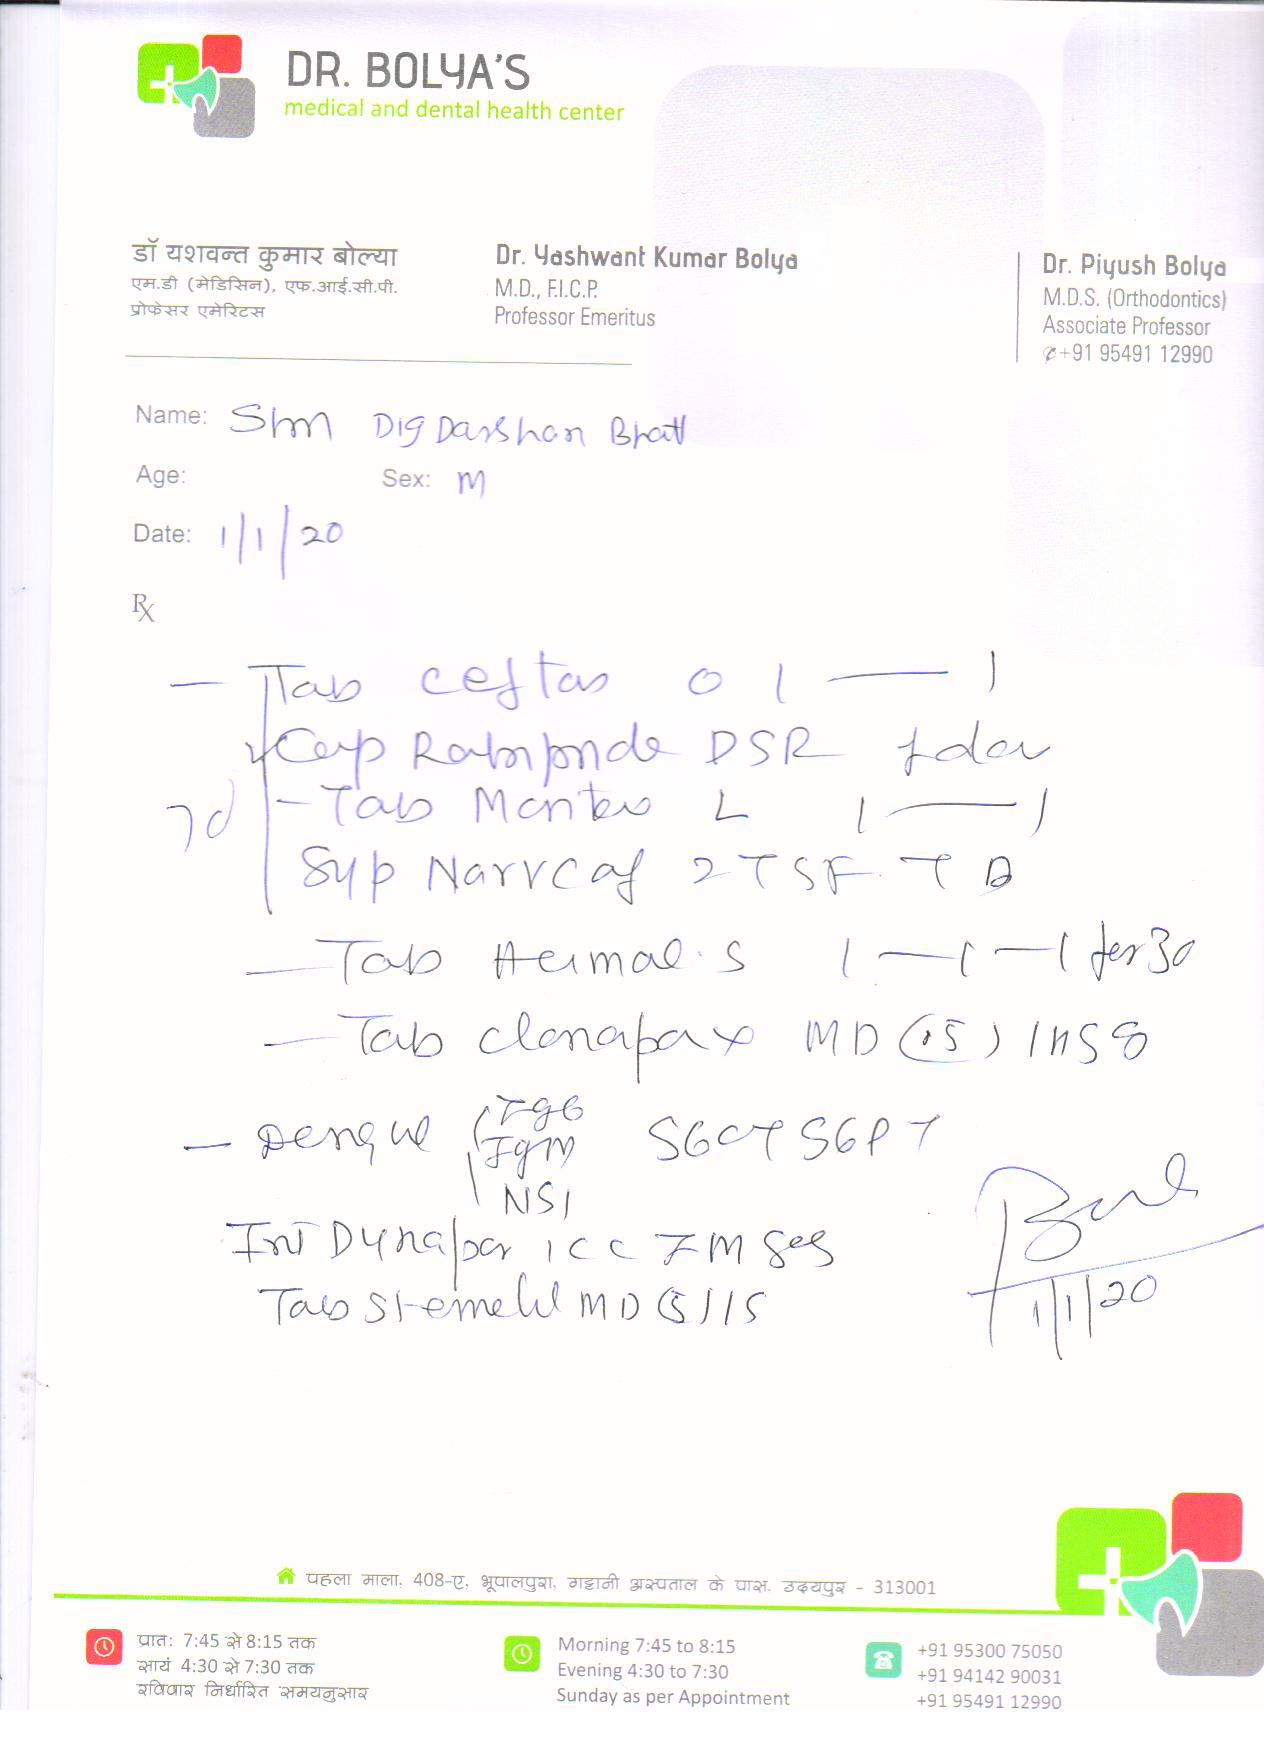 DR. BOLYA'S
medical and dental health center
डॉ यशवन्त कुमार बोल्या
एम.डी (मेडिसिन), एफ.आई.सी.पी.
प्रोफेसर एमेरिटस
Dr. Yashwant Kumar Bolya
M.D., F.I.C.P.
Professor Emeritus
Dr. Piyush Bolya
M.D.S. (Orthodontics)
Associate Professor
✆+91 95491 12990
Name: Shri DigDarshan Bhatt
Age: Sex: M
Date: 1/1/20
Rx
— Tab ceftas O 1 — 1
Cap DSR
7d — Tab L 1 — 1
Syp 2 TSF T D
— Tab S 1 — 1 — 1 for 3d
— Tab clonapax MD (.5)
— Dengue IgG SGOT SGPT
IgM
NS1
Inj Dynapar 1 CC IM
Tab Stemetil MD (5)
1/1/20
पहला माला, 408-ए, भूपालपुरा, गट्टानी अस्पताल के पास, उदयपुर - 313001
प्रातः 7:45 से 8:15 तक
सायं 4:30 से 7:30 तक
रविवार निर्धारित समयनुसार
Morning 7:45 to 8:15
Evening 4:30 to 7:30
Sunday as per Appointment
+91 95300 75050
+91 94142 90031
+91 95491 12990